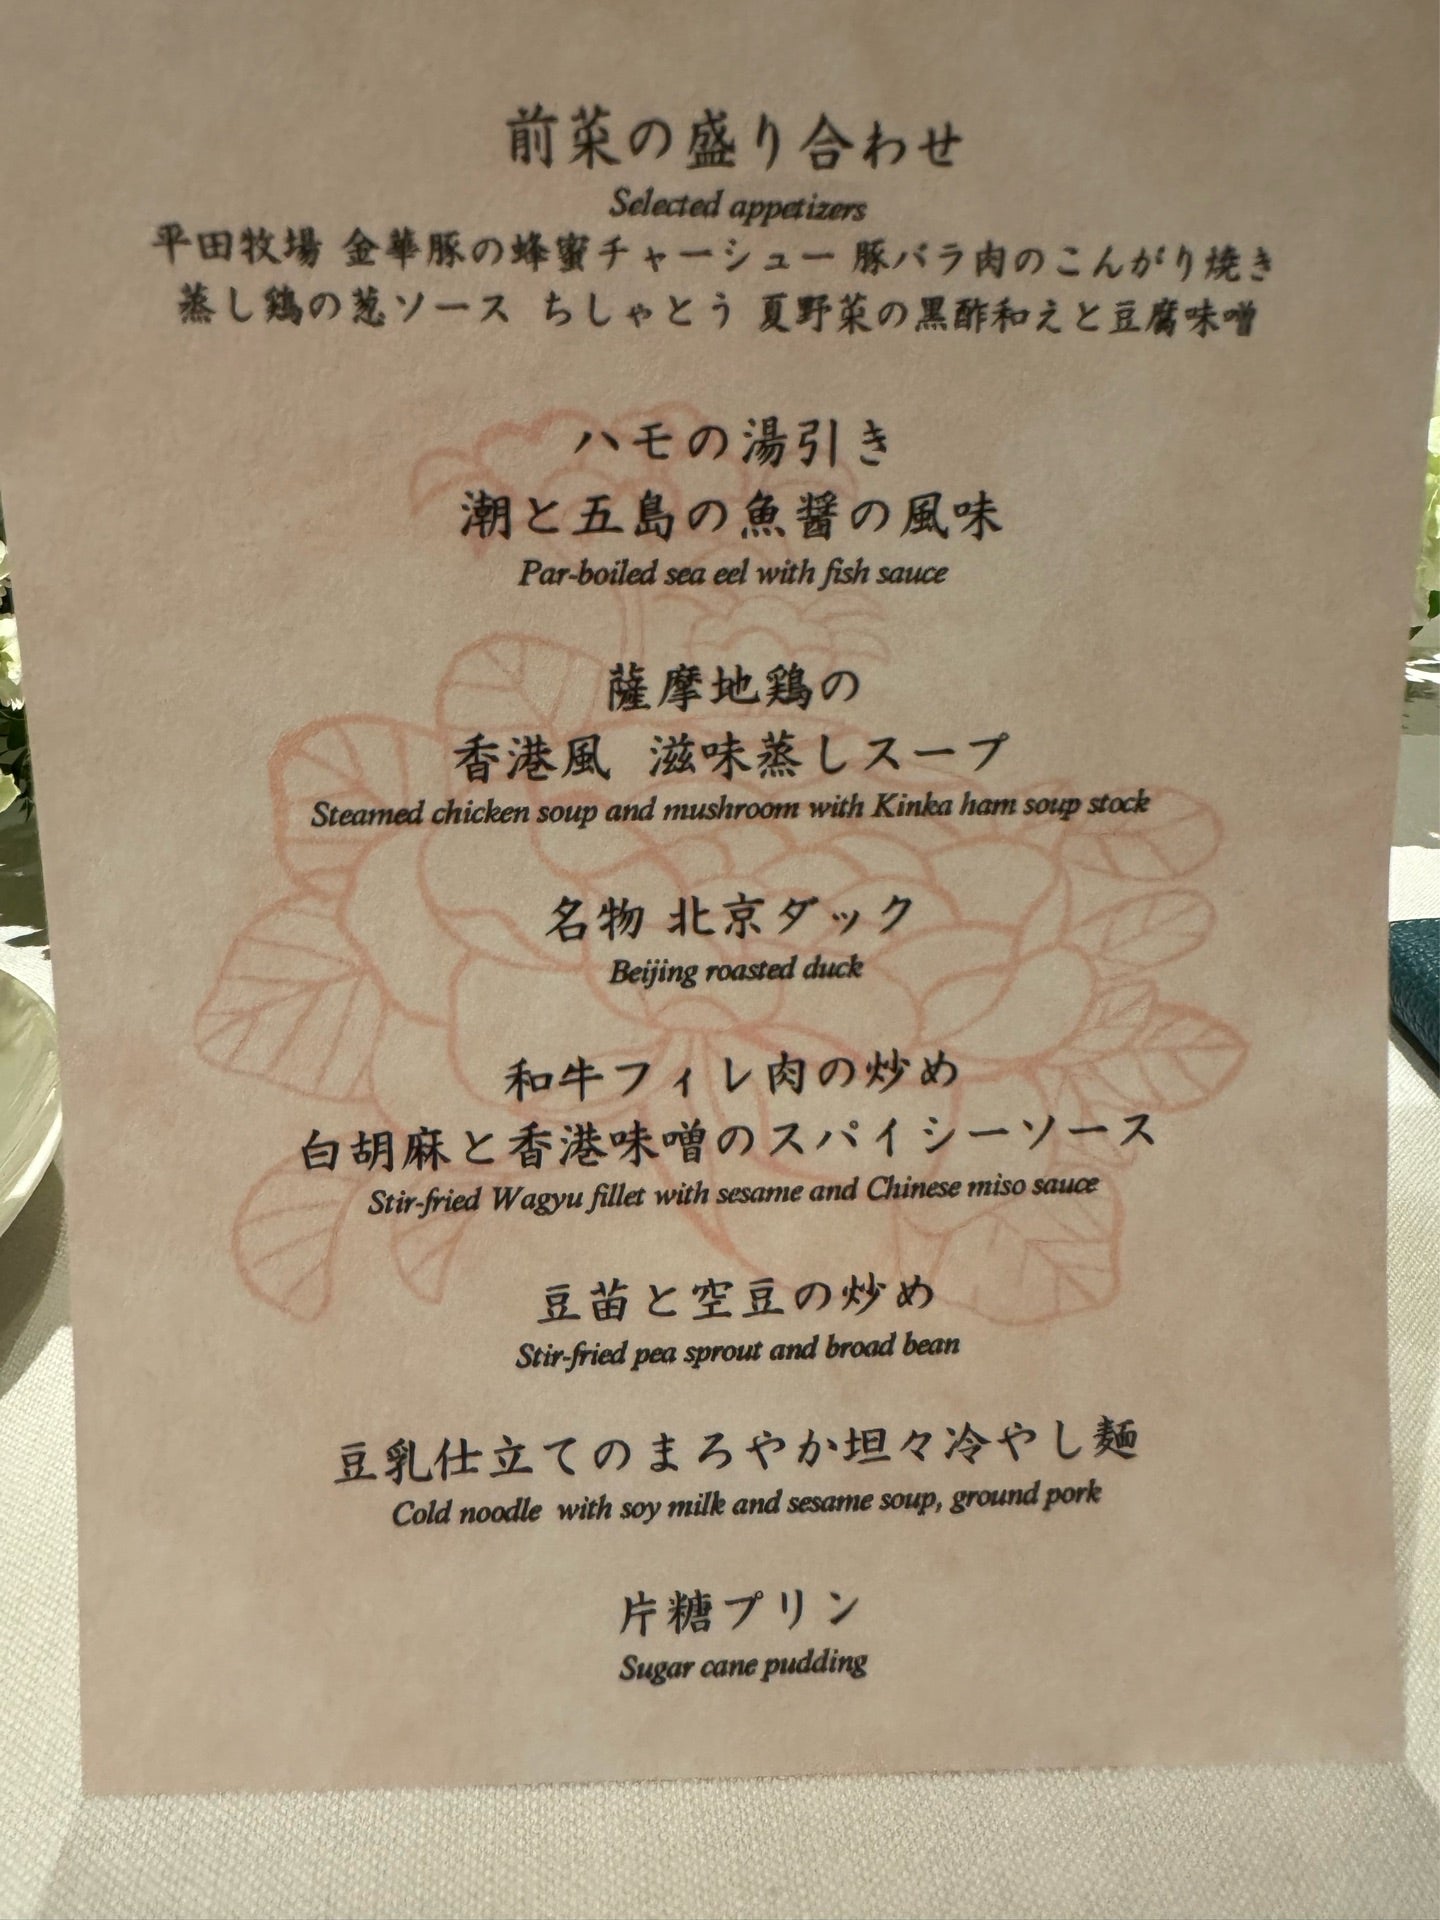 前菜の盛り合わせ
Selected appetizers
平田牧場 金華豚の蜂蜜チャーシュー 豚バラ肉のこんがり焼き
蒸し鶏の葱ソース ちしゃとう 夏野菜の黒酢和えと豆腐味噌
ハモの湯引き
潮と五島の魚醤の風味
Par-boiled sea eel with fish sauce
薩摩地鶏の
香港風 滋味蒸しスープ
Steamed chicken soup and mushroom with Kinka ham soup stock
名物 北京ダック
Beijing roasted duck
和牛フィレ肉の炒め
白胡麻と香港味噌のスパイシーソース
Stir-fried Wagyu fillet with sesame and Chinese miso sauce
豆苗と空豆の炒め
Stir-fried pea sprout and broad bean
豆乳仕立てのまろやか坦々冷やし麺
Cold noodle with soy milk and sesame soup, ground pork
片糖プリン
Sugar cane pudding